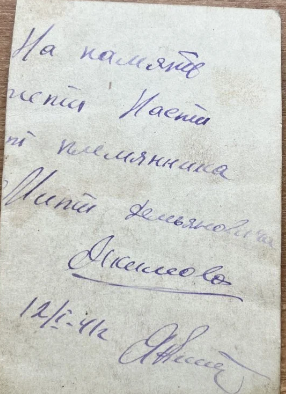 На память
тёти Насти
от племянника
Мити Демьяновича
Акимова
12/I-41г